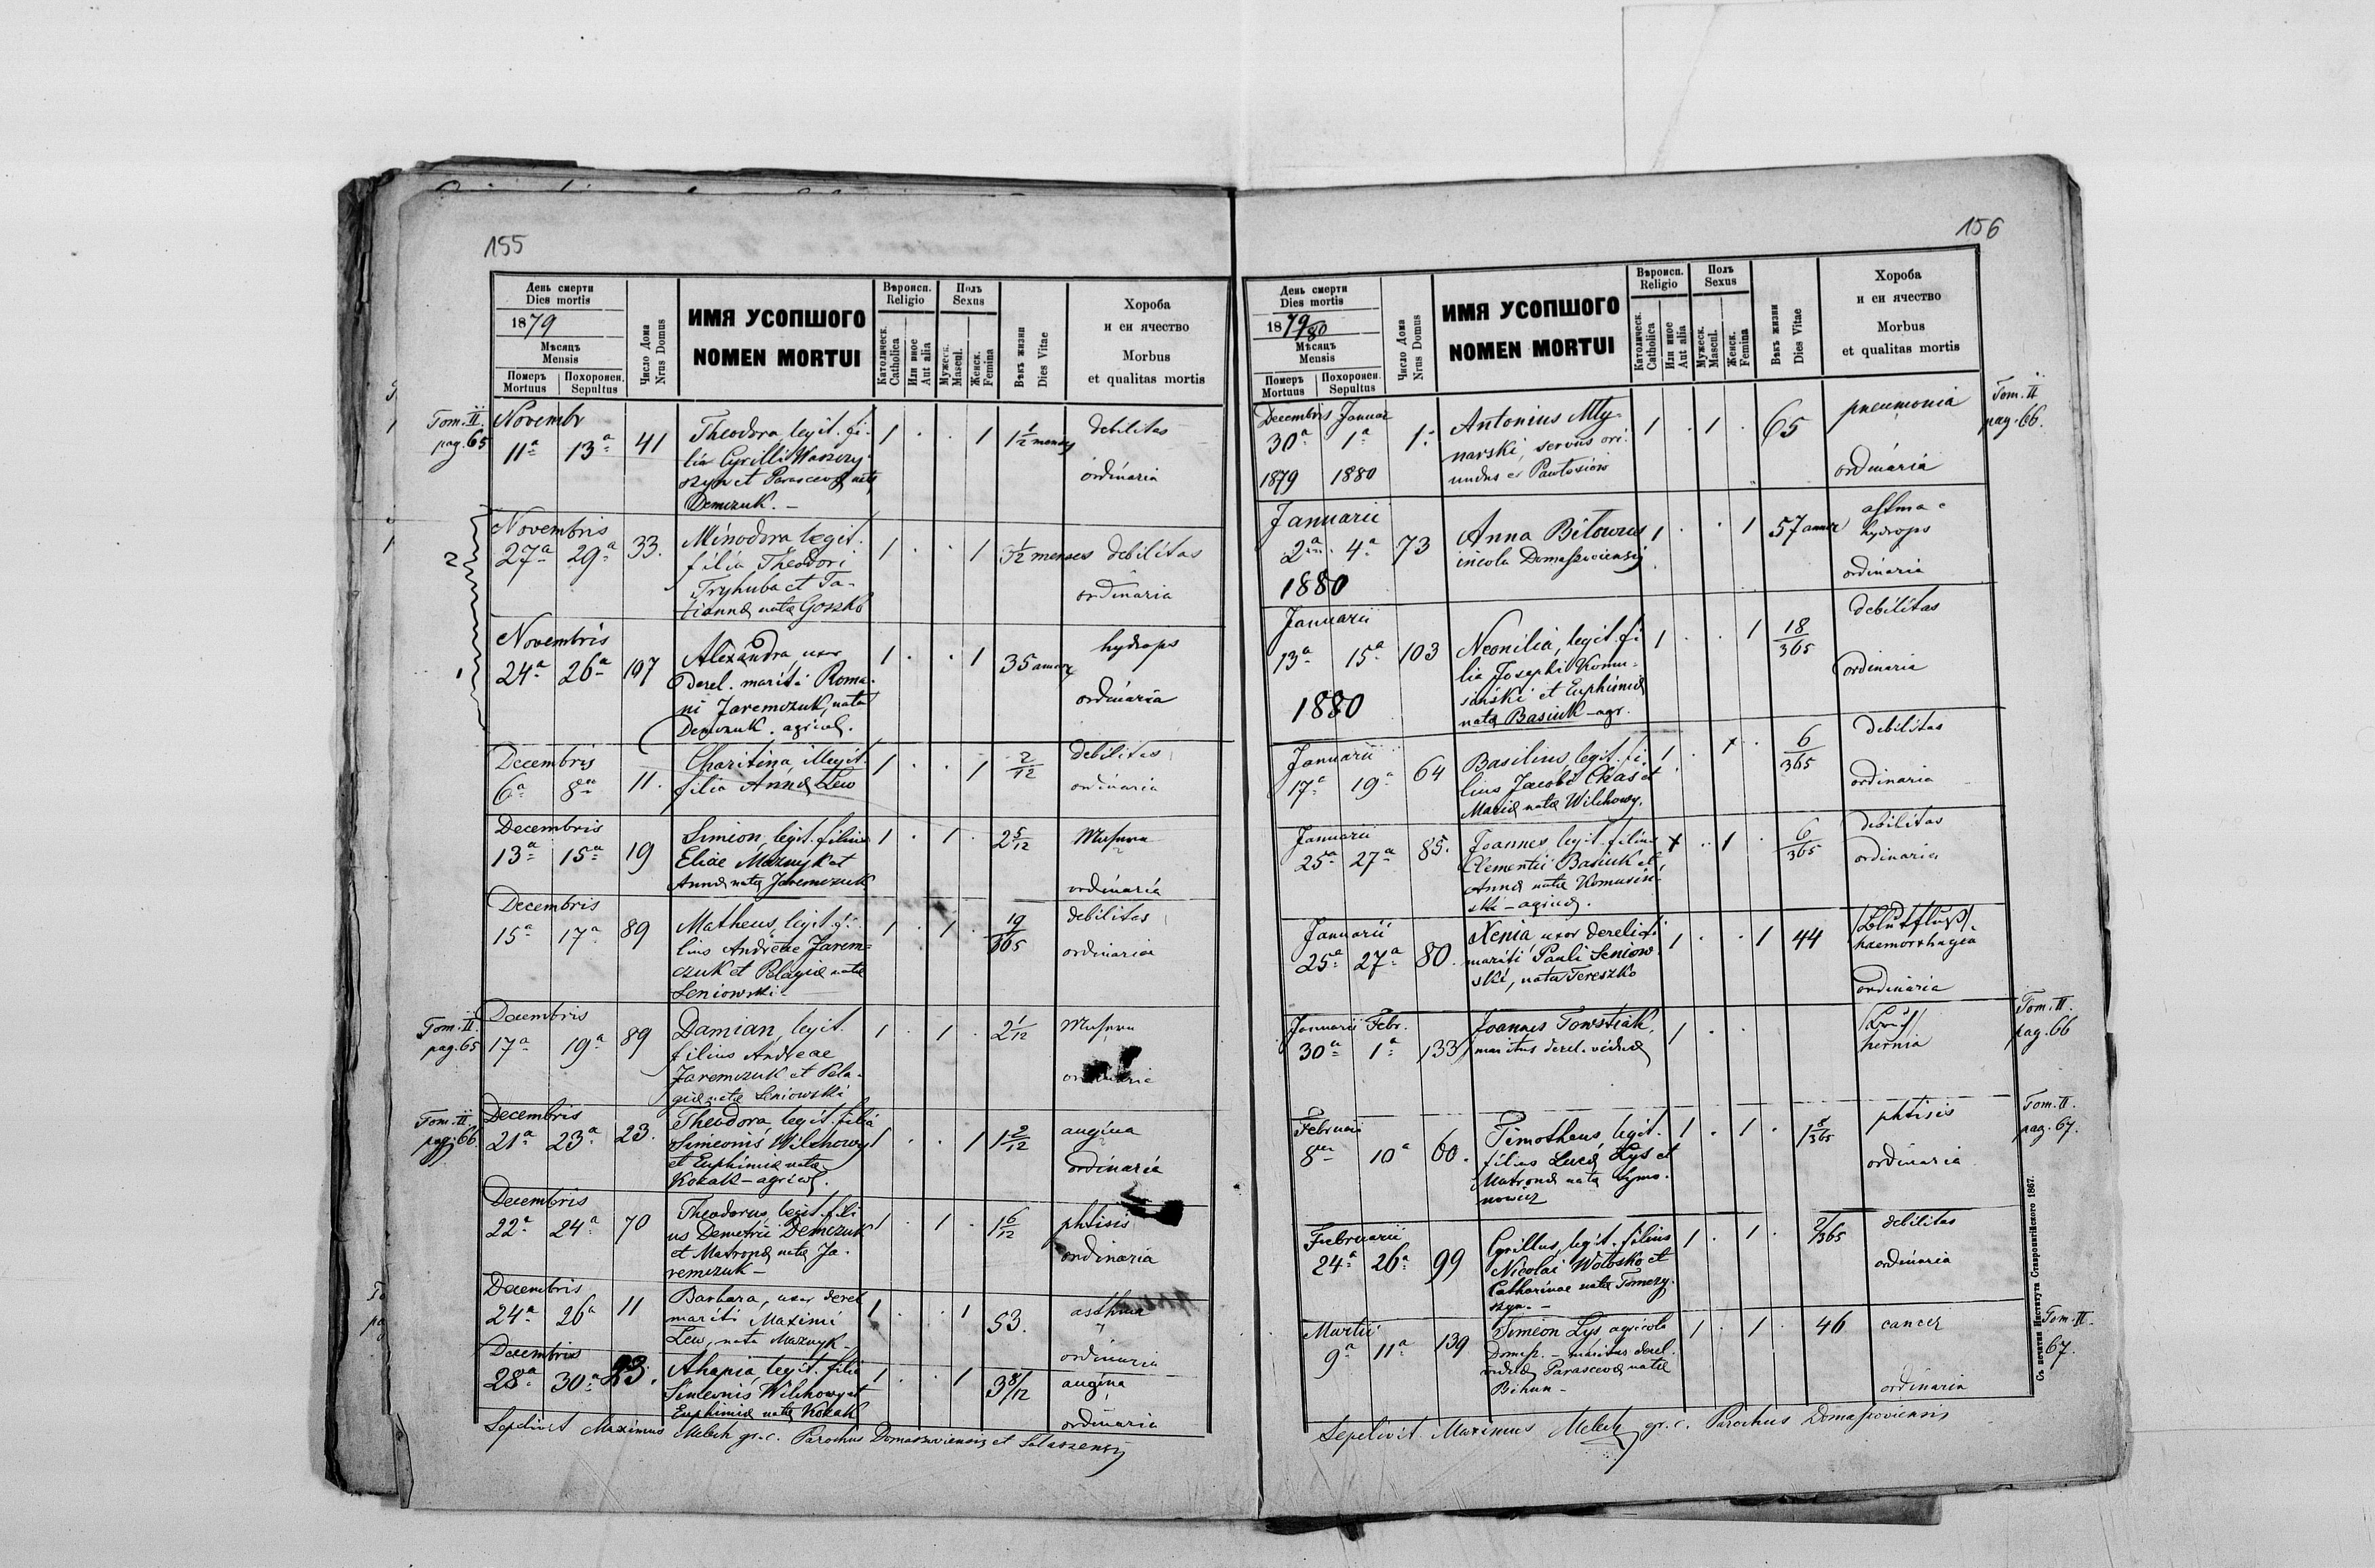 155
День смерти
Dies mortis
1879
Мѣсяцъ
Mensis
Померъ Mortuus
Похоронен. Sepultus
Число Дома
Nrus Domus
ИМЯ УСОПШОГО
NOMEN MORTUI
Вѣроисп.
Religio
Католическ.
Catholica
Или иное
Aut alia
Полъ
Sexus
Мужеск.
Mascul.
Женск.
Femina
Вѣкъ жизни
Dies Vitae
Хороба
и еи ячество
Morbus
et qualitas mortis
Tom. II.
pag. 65
Novembr
11a 13a 41
Theodora, legit. fi-
lia Cyrilli Warszy-
szyn et Parascevae natae
Demczuk. –
1 . . 1 1 1/2 menses
debilitas
ordinaria
2
Novembris
27a 29a 33.
Minodora legit.
filia Theodori
Tryhuba et Ta-
tianna nata Goszko
1 . . 1 3 1/2 menses debilitas
ordinaria
1
Novembris
24a 26a 107
Alexandra, uxor
derel. mariti Roma-
ni Jaremczuk, nata
Demczuk. agricol.
1 . . 1 35 annor
hydrops
ordinaria
Decembris
6a 8a 11.
Charitina, illegit.
filia Annae Lew
1 . . 1 2/12
debilitas
ordinaria
Decembris
13a 15a 19
Simeon, legit. filius
Eliae Maznyk et
Annae natae Jaremczuk
1 . 1 . 2 5/12
ordinaria
Decembris
15a 17a 89
Matheus, legit. fi-
lius Andreae Jarem-
czuk et Pelagiae natae
Seniowski –
1 . 1 . 19/365
debilitas
ordinaria
Tom. II.
pag. 65
Decembris
17a 19a 89
Damian, legit.
filius Andreae
Jaremczuk et Pela-
giae natae Seniowski
1 . 1 . 2 1/12
ordinaria
Tom. II.
pag. 66.
Decembris
21a 23a 23.
Theodora, legit. filia
Simeonis Wilchowy
et Euphimiae natae
Kozak – agricol.
1 . . 1 1 2/12
angina
ordinaria
Decembris
22a 24a 70
Theodorus, legit. fili
us Demetrii Demczuk
et Matronae natae Ja-
remczuk –
1 . 1 . 1 6/12
phtisis
ordinaria
Decembris
24a 26a 11
Barbara, uxor derel
mariti Maximi
Lew, nata Maznyk –
1 . . 1 53.
asthma
ordinaria
Decembris
28a 30a 23.
Ahapia, legit. filia
Simeonis Wilchowy et
Euphimiae natae Kozak
1 . . 1 3 8/12
angina
ordinaria
Sepelivit Maximus Melech gr. c. Parochus Domaszoviensis et Salaszensis
156
День смерти
Dies mortis
1879/80
Мѣсяцъ
Mensis
Померъ Mortuus
Похоронен. Sepultus
Число Дома
Nrus Domus
ИМЯ УСОПШОГО
NOMEN MORTUI
Вѣроисп.
Religio
Католическ.
Catholica
Или иное
Aut alia
Полъ
Sexus
Мужеск.
Mascul.
Женск.
Femina
Вѣкъ жизни
Dies Vitae
Хороба
и еи ячество
Morbus
et qualitas mortis
Decembris Januar
30a 1a 1.
1879 1880
Antonius Mły-
narski, servus ori-
undus
1 . 1 . 65
pneumonia
ordinaria
Tom. II
pag. 66.
Januarii
2a 4a 73
1880
Anna Bilowus
incola Domaszoviensis
1 . . 1 57 annor
hydrops
ordinaria
Januarii
13a 15a 103
1880
Neonilia, legit. fi
lia Josephi Komu-
sinski et Euphimiae
natae Basiuk – agr.
1 . . 1 18/365
debilitas
ordinaria
Januarii
17a 19a 64
Basilius, legit. fi-
lius Jacobi Chas et
Mariae natae Wilchowy.
1 . 1 . 6/365
debilitas
ordinaria
Januarii
25a 27a 85.
Joannes legit. filius
Clementii Basiuk et
Annae natae Komusin-
ski – agricol.
1 . 1 . 6/365
debilitas
ordinaria
Januarii
25a 27a 80.
Xenia uxor derelicti
mariti Pauli Seniow
ski, nata Tereszko
1 . . 1 44
/Blutfluß/
haemorrhagia
ordinaria
Januarii Febr.
30a 1a 133
Joannes Towstiak,
maritus derel. viduae
1 . .
hernia
Tom. II.
pag. 66
Februarii
8a 10a 60.
Timotheus, legit.
filius Lucae Łys et
Matronae natae Symo-
nowicz
1 . 1 . 1 8/365
phtisis
ordinaria
Tom. II.
pag. 67.
Februarii
24a 26a 99
Cyrillus, legit. filius
Nicolai Wołosko et
Catharinae natae Tomczy-
szyn. –
1 . 1 . 2/365
debilitas
ordinaria
Martii
9a 11a 139
Simeon Łys agricola
Domasz. – maritus derel.
viduae Parascevae natae
Bihun –
1 . 1 . 46
cancer
ordinaria
Tom. II.
67.
Sepelivit Maximus Melech gr. c. Parochus Domaszoviensis
Съ печатни Института Ставропигійского 1867.